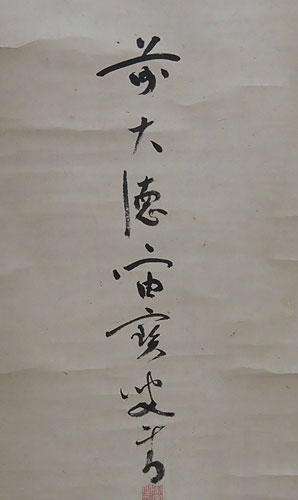 前大徳宙寳叟書